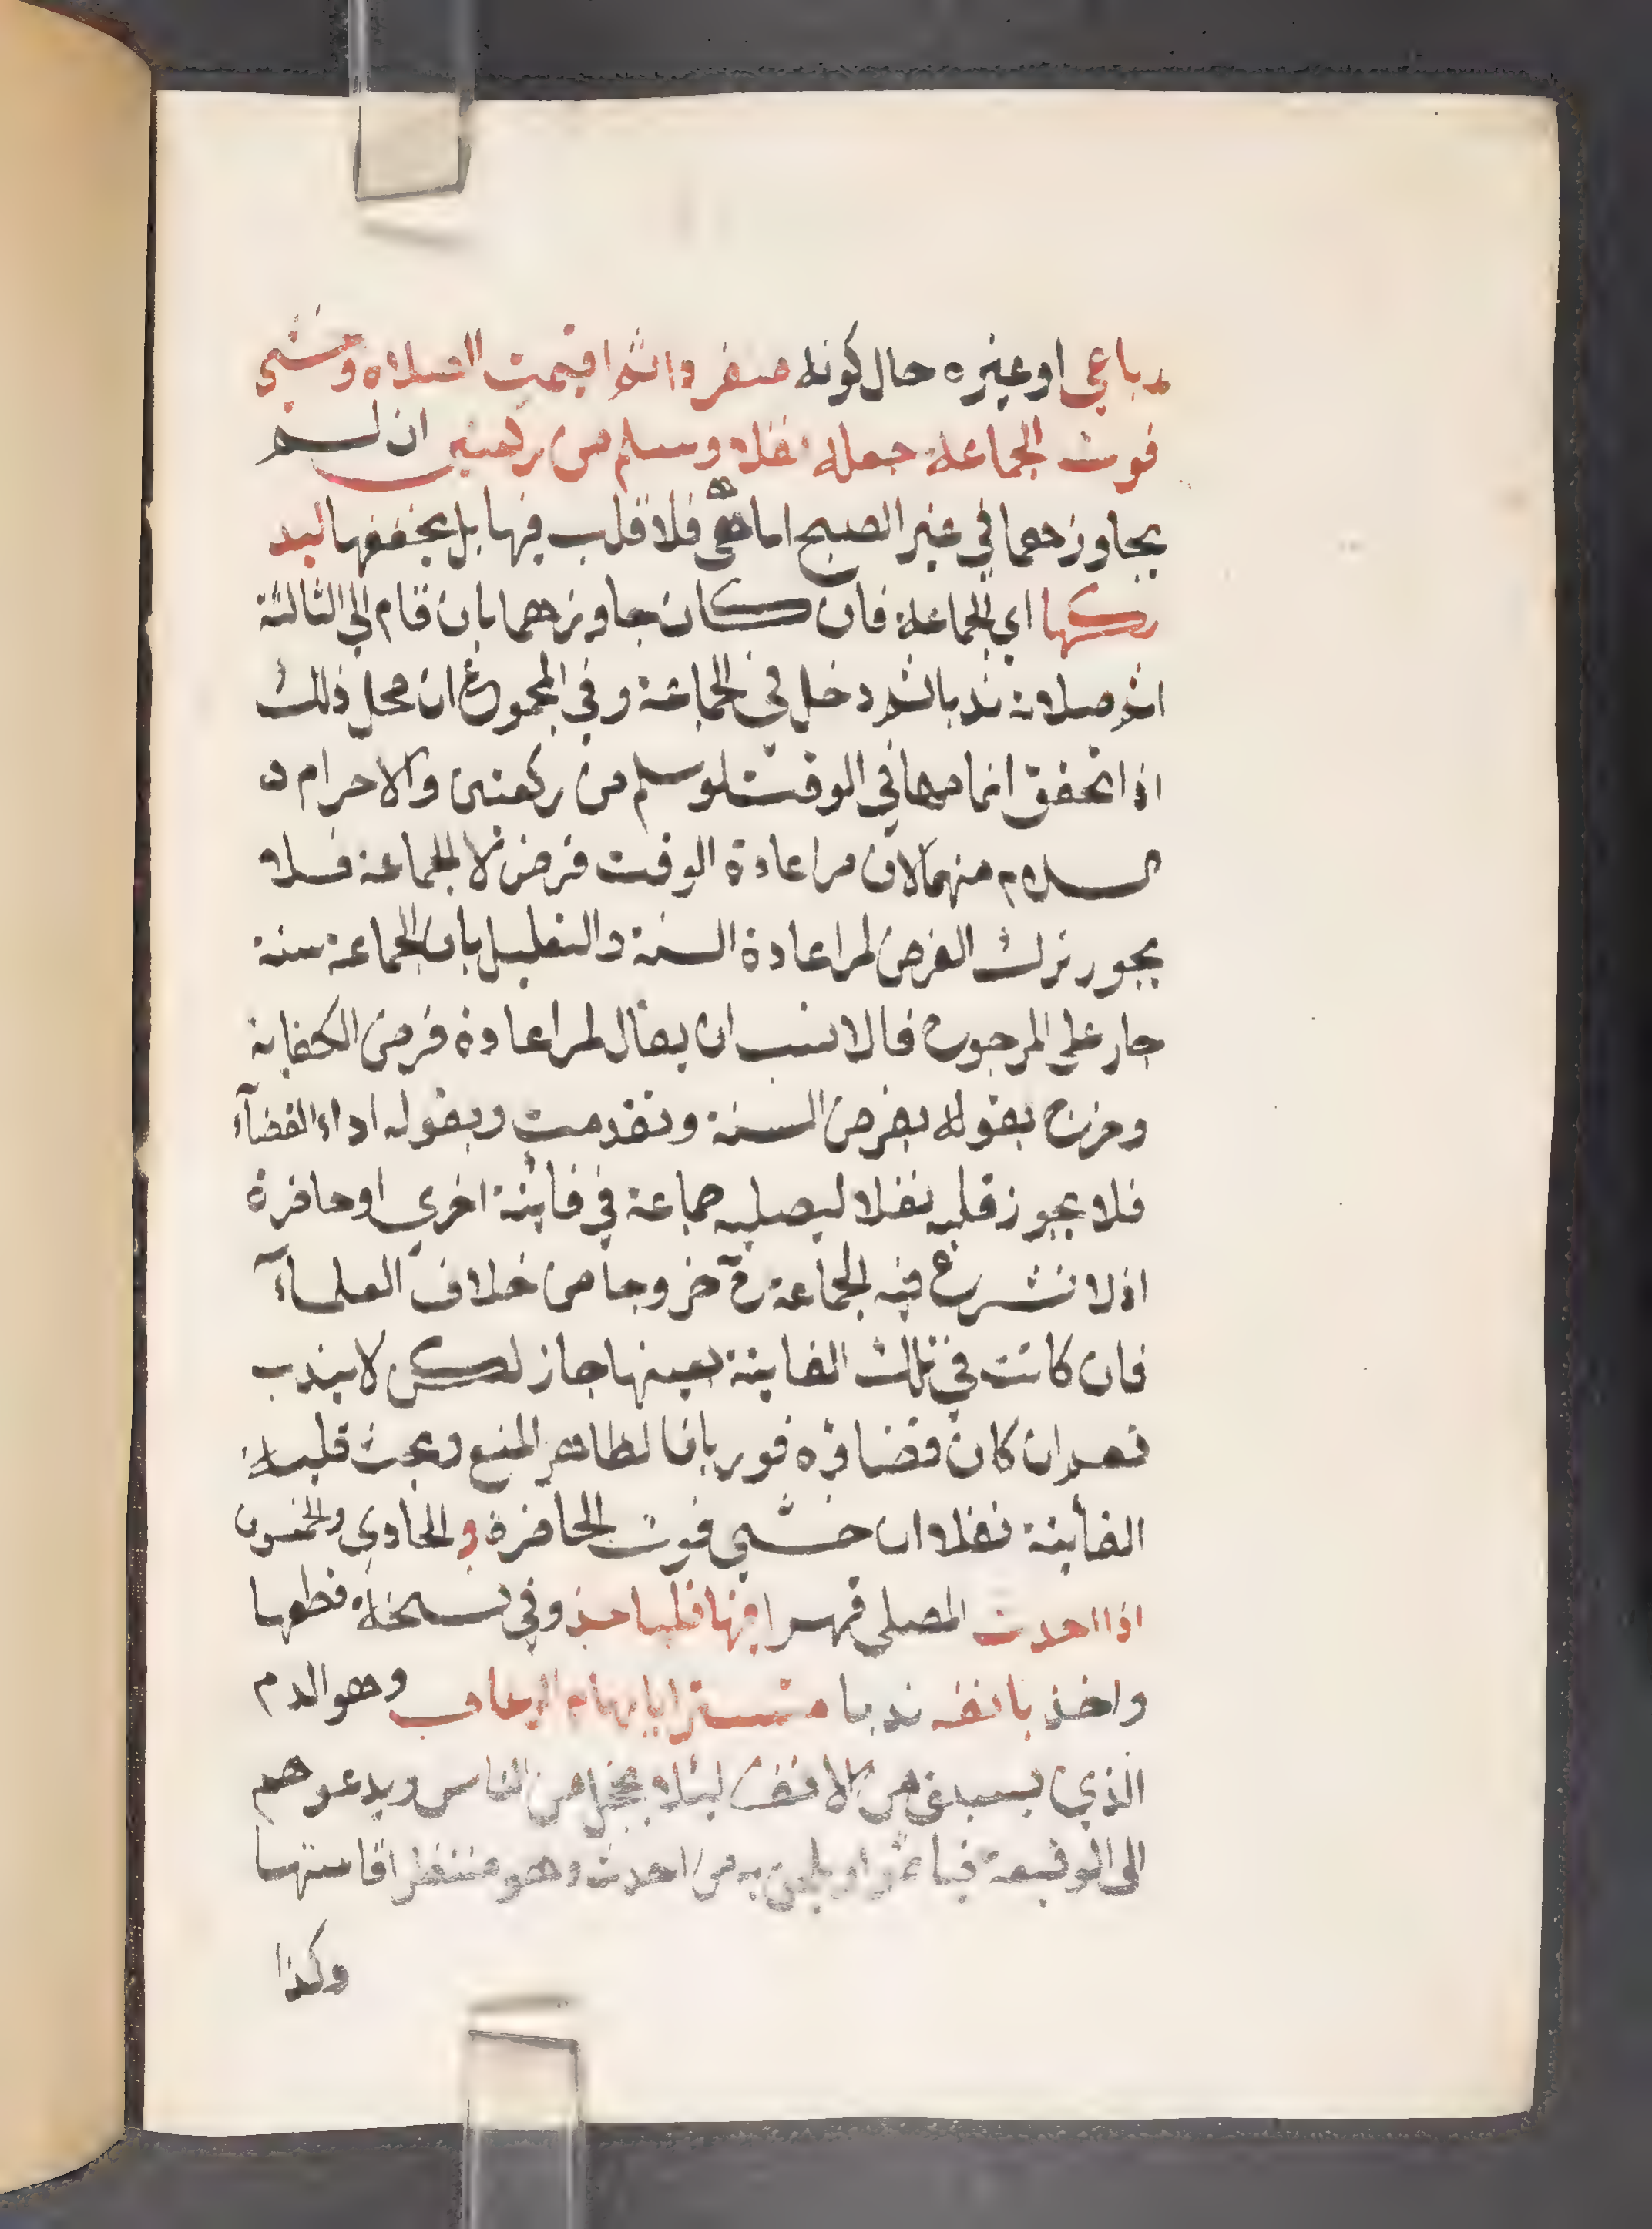 رباعي او غيره حال كونه منفردا ثم اقيمت الصلاه وخشي
فوت الجماعة جعله نفلا وسلم من ركعتين ان لم
يجاوزهما في غير الصبح اما هي فلا قلب فيها بل يخففها ليد
ركها اي الجماعة فان كان جاوزهما بان قام الي الثالثة
اتم صلاته ندبا ثم دخل في الجماعة وفي المجموع ان محل ذلك
اذا تحقق اتمامها في الوقت لو سلم من ركعتين والا حرم
السلام منهما لان مراعادة الوقت فرض لا الجماعة فلا
يجوز ترك الفرض لمراعادة السنة والتعليل بان الجماعة سنة
جار علي المرجوح فالانسب ان يقال لمراعادة فرض الكفاية
وخرج بقوله بفرض السنة وتقدمت وبقوله اداء القضآء
فلا يجوز قلبه نفلا ليصليه جماعة في فائتة اخري او حاضرة
اذ لا تشرع فيه الجماعة ح خروجا من خلاف العلمآء
فان كانت في تلك الفايتة بعينها جاز لكن لا يندب
نعم ان كان قضاؤه فوريا فالظاهر المنع ويجب قلب
الفائتة نفلا ان خشي فوت الحاضرة و الحادي والخمسون
اذا احدث المصلي قهرا فيها فلياخذ وفي نسخة قطعها
واخذ بانفه ندبا متسترا بايهام الرعاف وهو الدم
الذي يسبق من الانف ليئلا يخجل من الناس ويدعوهم
الى الوقيعة فياثموا ويلحق به من احدث وهو منتظر اقامتها
وكذا